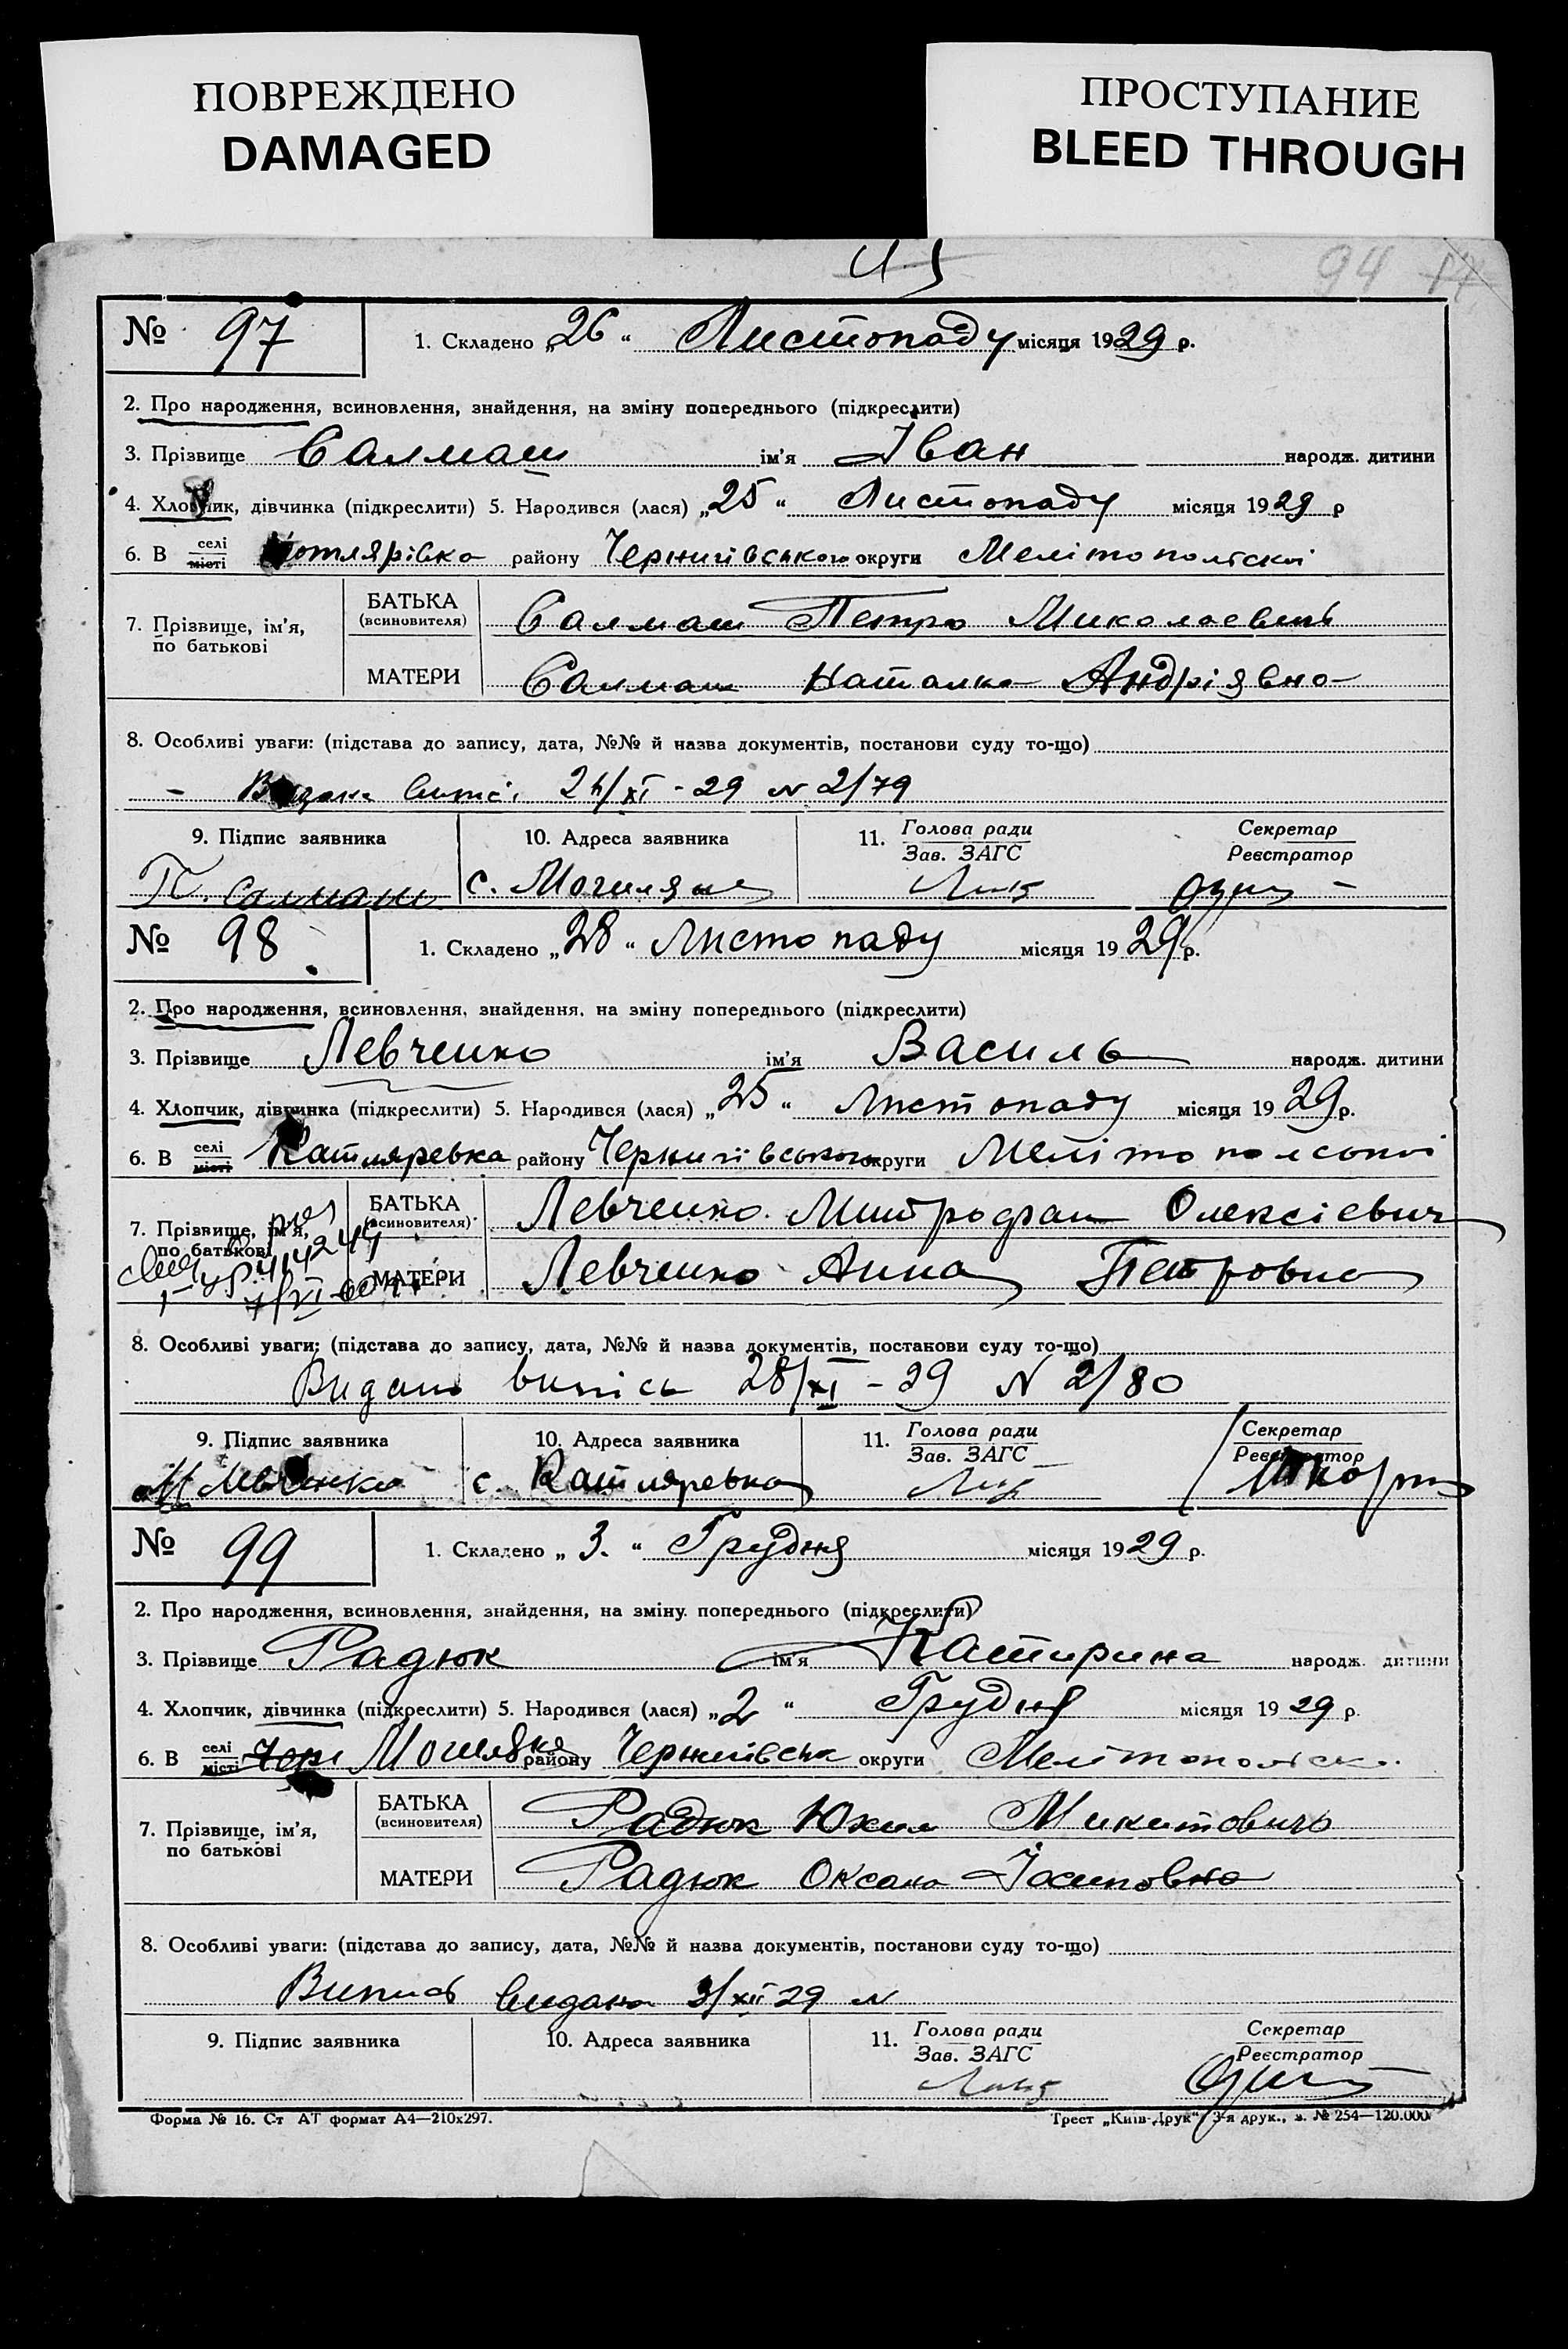 ПОВРЕЖДЕНО
DAMAGED
ПРОСТУПАНИЕ
BLEED THROUGH
94 17
№ 97 1. Складено „26“ Листопаду місяця 1929 р.
2. Про народження, всиновлення, знайдення, на зміну попереднього (підкреслити)
3. Прізвище Салмаш ім'я Іван народж. дитини
4. Хлопчик, дівчинка (підкреслити) 5. Народився (лася) „25“ Листопаду місяця 1929 р
6. В селі місті Котлярівка району Чернигівського округи Мелітопольскоі
7. Прізвище, ім'я, по батькові
БАТЬКА (всиновителя) Салмаш Петро Миколаевичь
МАТЕРИ Салмаш Наталка Андріявна
8. Особливі уваги: (підстава до запису, дата, №№ й назва документів, постанови суду то-що)
- XI - 29 N 2/79
9. Підпис заявника 10. Адреса заявника 11. Голова ради Зав. ЗАГС Секретар Реєстратор
П. Салмаш с. Могиляне
№ 98. 1. Складено „28“ Листопаду місяця 1929 р.
2. Про народження, всиновлення, знайдення, на зміну попереднього (підкреслити)
3. Прізвище Левченко ім'я Василь народж. дитини
4. Хлопчик, дівчинка (підкреслити) 5. Народився (лася) „25“ Листопаду місяця 1929 р.
6. В селі місті Катляревка району Чернигівського округи Мелітополськоі
7. Прізвище, ім'я, по батькові
БАТЬКА (всиновителя) Левченко Митрофан Олексіевич
МАТЕРИ Левченко Анна Петровна
8. Особливі уваги: (підстава до запису, дата, №№ й назва документів, постакови суду то-що)
Видано випісь 28/XI - 29 N 2/80
9. Підпис заявника 10. Адреса заявника 11. Голова ради Зав. ЗАГС Секретар Реєстратор
М Левченко с. Катляревка
№ 99 1. Складено „3.“ Грудня місяця 1929 р.
2. Про народження, всиновлення, знайдення, на зміну. попереднього (підкреслити)
3. Прізвище Радюк ім'я Катирина народж. дитини
4. Хлопчик, дівчинка (підкреслити) 5. Народився (лася) „2“ Грудня місяця 1929 р.
6. В селі місті Черн Могиляне району Чернигівськ округи Мелітопольск.
7. Прізвище, ім'я, по батькові
БАТЬКА (всиновителя) Радюк Юхим Микитовичь
МАТЕРИ Радюк Оксана Іосиповна
8. Особливі уваги: (підстава до запису, дата, №№ й назва документів, постанови суду то-що)
Випись видана 3/XII 29 N
9. Підпис заявника 10. Адреса заявника 11. Голова ради Зав. ЗАГС Секретар Реєстратор
Форма № 16. Ст АТ формат А4—210x297. Трест „Київ-Друк“ 3-я друк., з. № 254—120.000